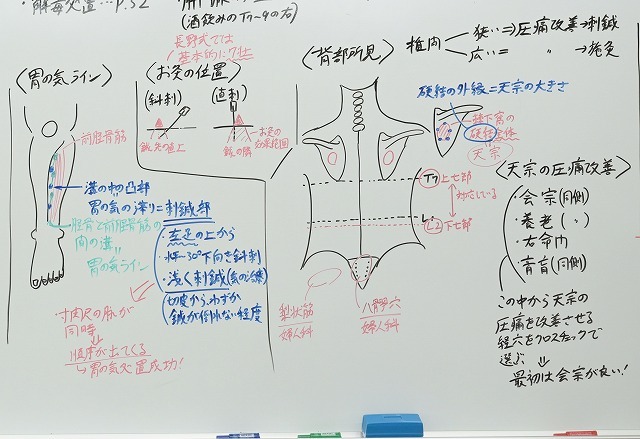 ・解毒処置…P.52
(酒飲みのT7-9の右)
長野式では
基本的に7壮
〈胃の気ライン〉
前脛骨筋
溝の中の凸部
胃の気の滞り＝刺鍼部
脛骨と前脛骨筋の
間の溝
胃の気ライン
・左足の上から
・水平~30°下向き斜刺
・浅く刺鍼(気の治療)
切皮からわずか
鍼が倒れない程度
・寸関尺の脈が
同時
→胃の気処置成功!
〈お灸の位置〉
(斜刺)
(直刺)
鍼先の直上
鍼の隣
お灸の
効果範囲
〈背部所見〉
椎間
狭い⇒圧痛改善→刺鍼
広い＝ 〃 →施灸
硬結の外縁＝天宗の大きさ
棘下窩の
硬結全体
天宗
T7 上七部
L2 下七部
梨状筋
婦人科
八髎穴
婦人科
〈天宗の圧痛改善〉
・会宗(同側)
・養老( 〃 )
・右命門
・膏肓(同側)
この中から天宗の
圧痛を改善させる
経穴をクロスチェックで
選ぶ
最初は会宗が良い!